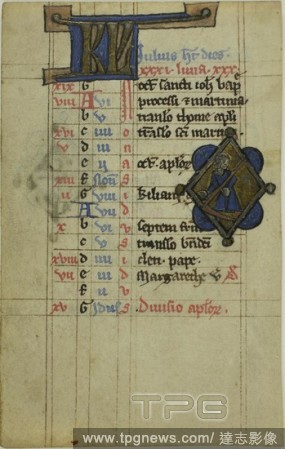 KL Julius ht dies
xxxi. luna xxx.
xix G oct sancti ioh bap
viii A vi processi & martinia
b v transl thome apli
xvi c iiii transl sci martini
v d iii
e ii oct aplor
xiii f non
ii G viii Kiliani
A vii
x b vi septem fr
c v transl bndci
xviii d iiii cleti pape
vii e iii Margarethe v
f ii
xv G idus Divisio aplor
TPG
www.tpgnews.com/ 達志影像